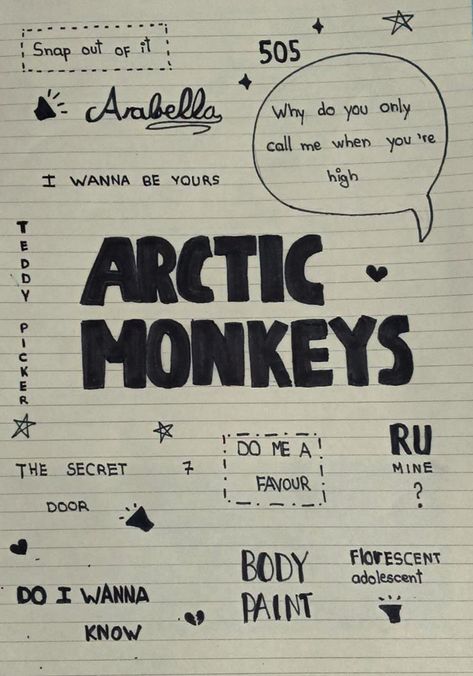 Snap out of it
505
Arabella
Why do you only
call me when you're
high
I WANNA BE YOURS
TEDDY PICKER
ARCTIC
MONKEYS
THE SECRET
DOOR
7
DO ME A
FAVOUR
RU
MINE
?
DO I WANNA
KNOW
BODY
PAINT
FlorESCENT
adolescent